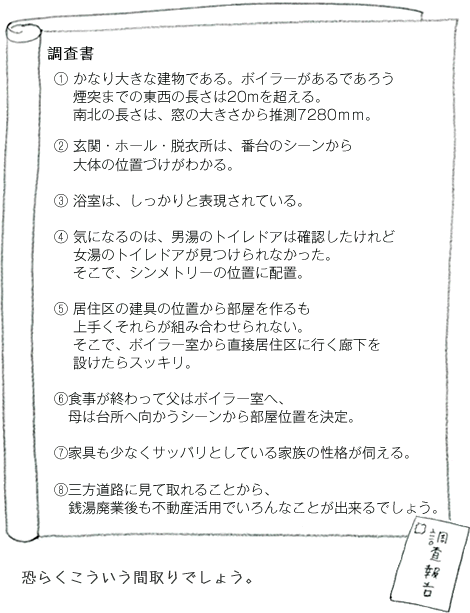 調査書
① かなり大きな建物である。ボイラーがあるであろう
煙突までの東西の長さは20mを超える。
南北の長さは、窓の大きさから推測7280mm。
② 玄関・ホール・脱衣所は、番台のシーンから
大体の位置づけがわかる。
③ 浴室は、しっかりと表現されている。
④ 気になるのは、男湯のトイレドアは確認したけれど
女湯のトイレドアが見つけられなかった。
そこで、シンメトリーの位置に配置。
⑤ 居住区の建具の位置から部屋を作るも
上手くそれらが組み合わせられない。
そこで、ボイラー室から直接居住区に行く廊下を
設けたらスッキリ。
⑥食事が終わって父はボイラー室へ、
母は台所へ向かうシーンから部屋位置を決定。
⑦家具も少なくサッパリとしている家族の性格が伺える。
⑧三方道路に見て取れることから、
銭湯廃業後も不動産活用でいろんなことが出来るでしょう。
調査報告
恐らくこういう間取りでしょう。